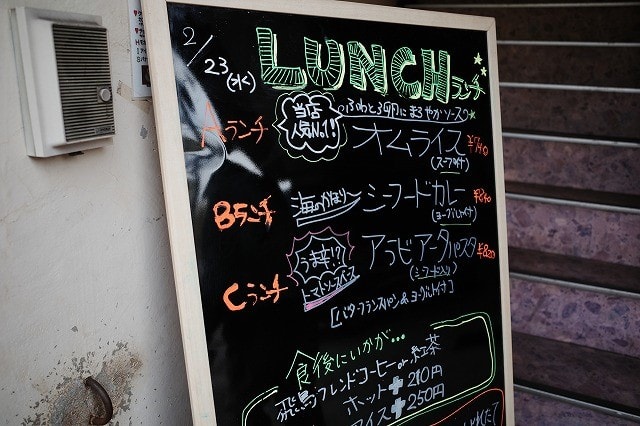 2/23(水) LUNCH ランチ
当店人気No.1!
ふわとろ卵にまろやかソース
Aランチ オムライス ¥740
(スープ付)
Bランチ 海のかほり〜 シーフードカレー ¥840
(ヨーグルト付)
Cランチ うま辛!? トマトソースベース アラビアータパスタ ¥820
(シーフード入り)
[バターフランスパン&ヨーグルト付]
食後にいかが…
飛鳥ブレンドコーヒー or 紅茶
ホット+210円
アイス+250円